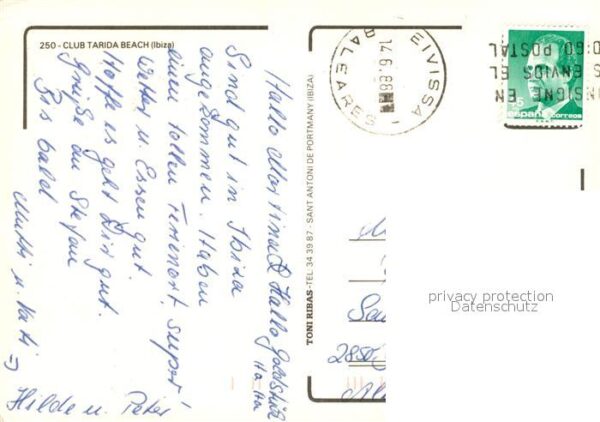 250 - CLUB TARIDA BEACH (Ibiza)
Hallo Martina & Hallo
Ha Ha
Sind gut in Ibiza
angekommen. Haben
einen tollen Ferienort, super!
Wetter u. Essen gut.
Hoffe es geht Dir gut.
Grüße an Stefan
Bis bald
Mutti u. Vati
Hilde u. Peter
TONI RIBAS - TEL. 34 39 87 - SANT ANTONI DE PORTMANY (IBIZA)
EIVISSA
14.6.88
BALEARES
CONSIGNE EN
SUS ENVIOS EL
CODIGO POSTAL
15
españa correos
2850
privacy protection
Datenschutz